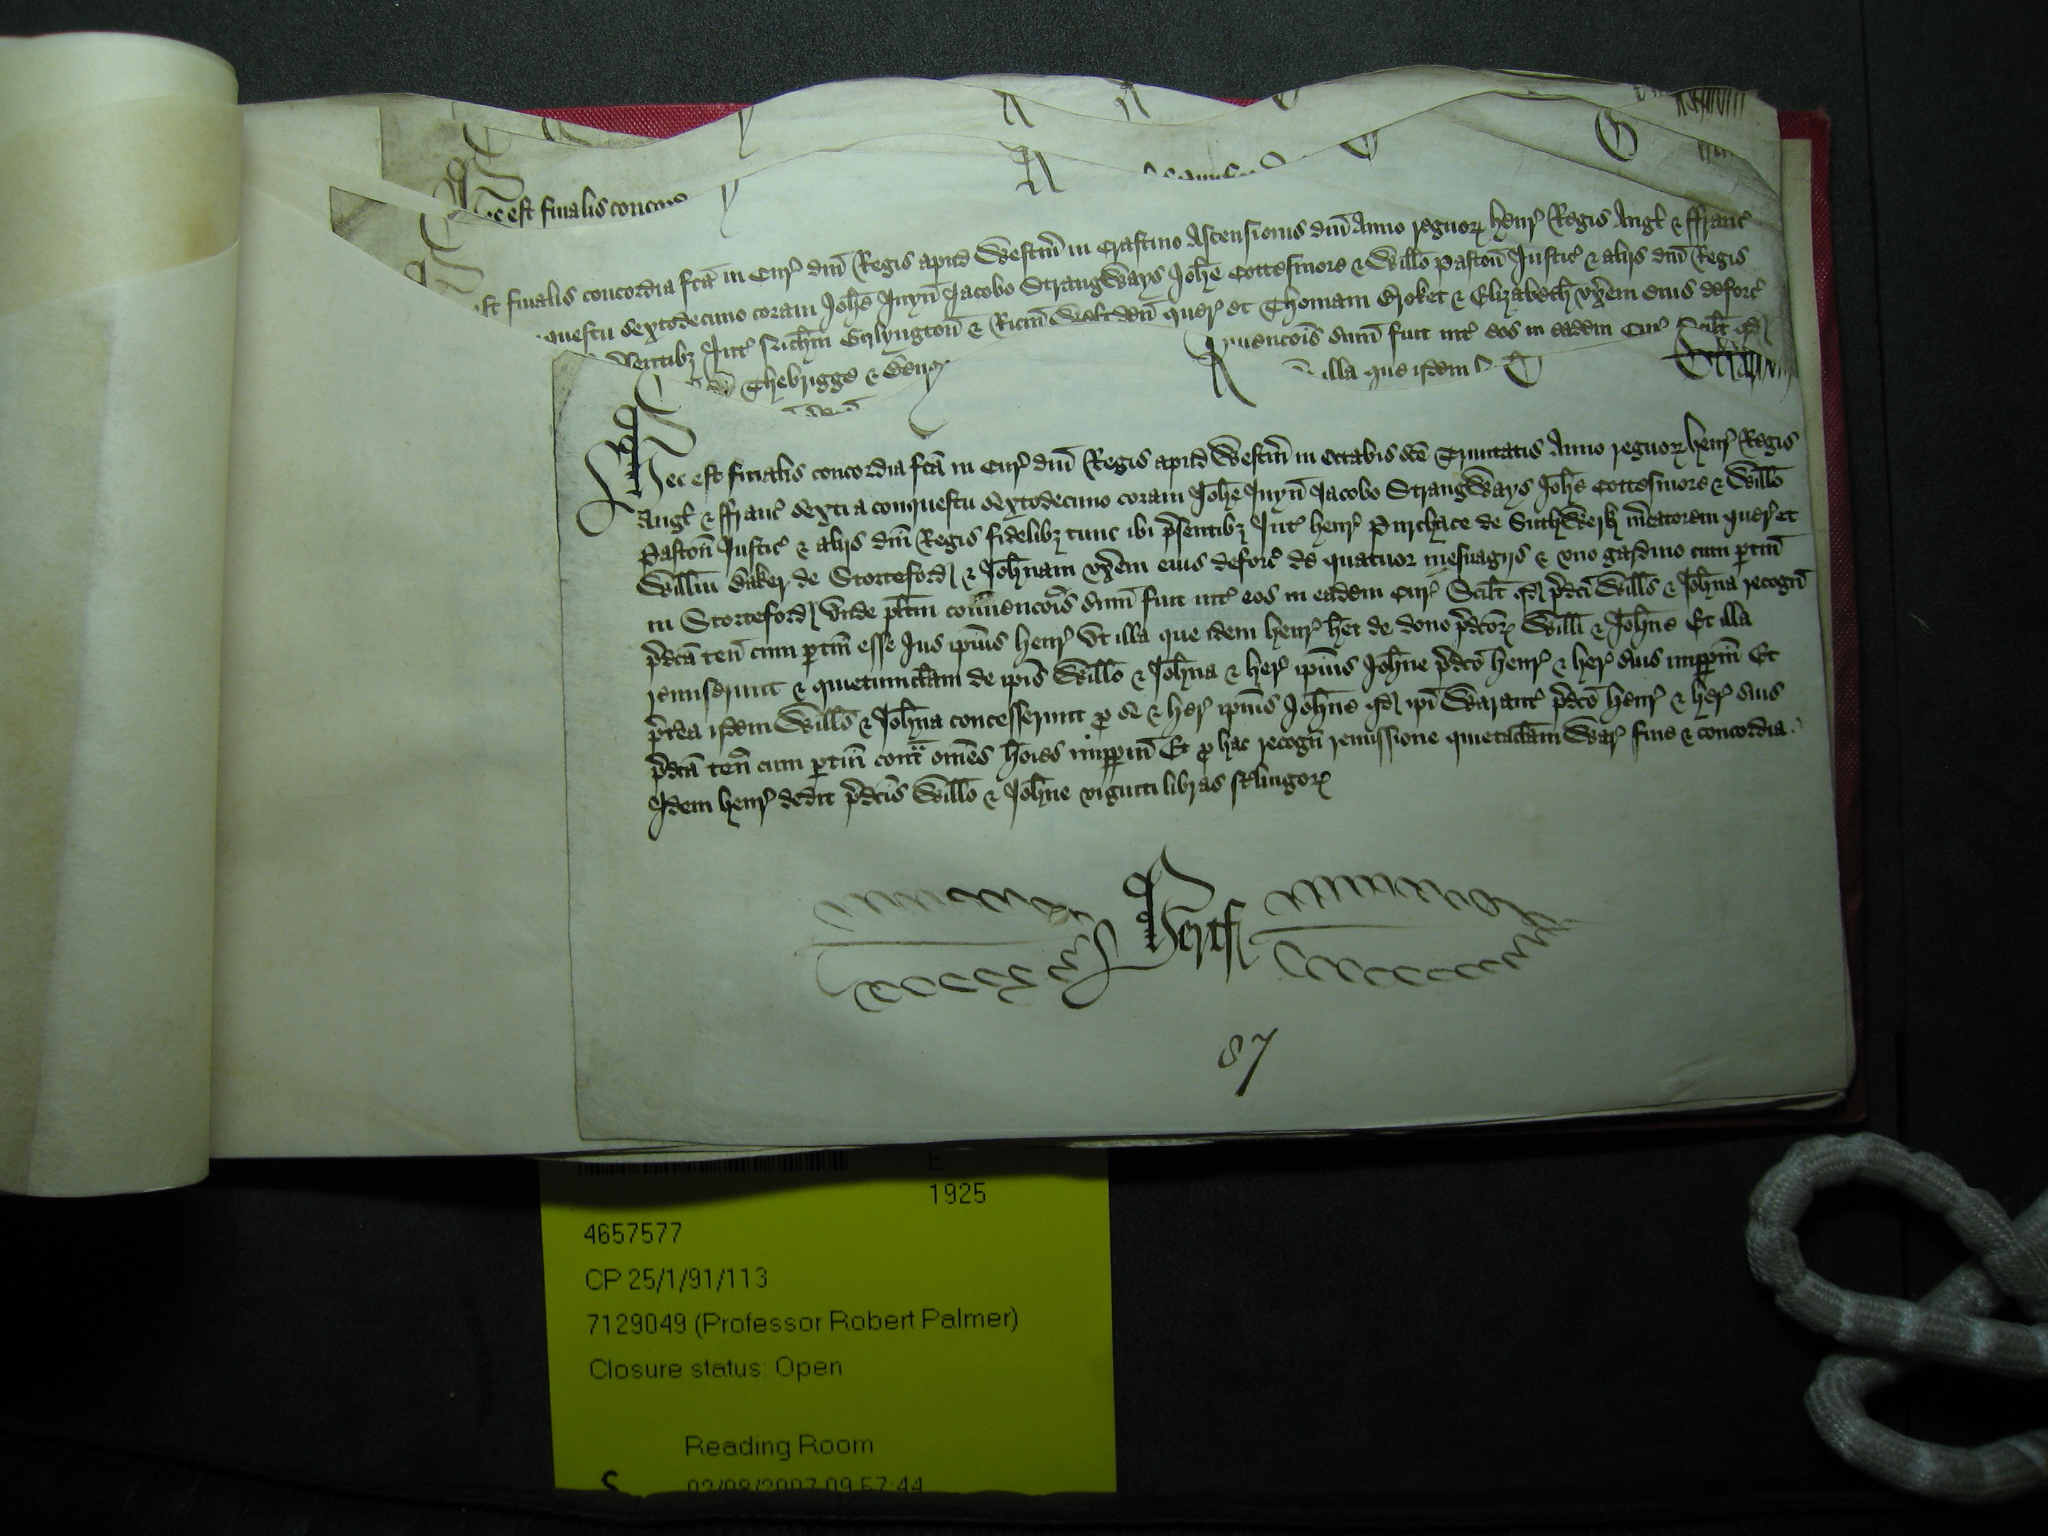 ec est finalis conc
est finalis concordia fcā in Cur' dnī Regis apud Westm̄ in Crastino Ascensionis dnī Anno regnor' henr' Regis Angl' & ffranc'
questu sextodecimo coram Joħe Juyn̄ Jacobo Strangways Joħe Cottesmore & Willo Paston̄ Justic' & alijs dnī Regis
sentibz Int' Ricm̄ Walden̄ quer' et Thomam Broket & Elizabeth' vxēm eius deforc'
Thebrigge & uencōis sum̄ fuit int' eos in eadem Cur' Scilt qd
illa que ijdem
Hec est finalis concordia fcā in Cur' dnī Regis apud Westm̄ in Octabis scē Trinitatis Anno regnor' henr' Regis
Angl' & ffranc' sexti a conquestu sextodecimo coram Joħe Juyn̄ Jacobo Strangways Joħe Cottesmore & Willo
Paston̄ Justic' & alijs dnī Regis fidelibz tunc ibi p'sentibz Int' henr' Purchace de Suthwerk m'catorem quer' et
Willm̄ Baker de Storteford & Joħnam vxēm eius deforc' de quatuor mesuagijs & vno gardino cum ptin̄
in Storteford vnde pltm̄ conuencōis sum̄ fuit int' eos in eadem Cur' Scilt qd p'dcī Wills & Joħna recogn̄
p'dcā ten̄ cum ptin̄ esse Jus ipius henr' vt illa que idem henr' het de dono p'dcor' Willi & Joħne Et illa
remiserunt & quietumclam̄ de ipīs Willo & Joħna & her' ipius Joħne p'dcō henr' & her' suis imppm̄ Et
p'tea ijdem Wills & Joħna concesserunt p se & her' ipius Joħne qd ipī Warant' p'dcō henr' & her' suis
p'dcā ten̄ cum ptin̄ cont' om̄es hoīes imppm̄ Et p hac recogn̄ remissione quietaclam̄ War' fine & concordia
Idem henr' dedit p'dcīs Willo & Joħne viginti libras st'lingor'
Hertf
87
E
1925
4657577
CP 25/1/91/113
7129049 (Professor Robert Palmer)
Closure status: Open
Reading Room
S 02/08/2007 09:57:44